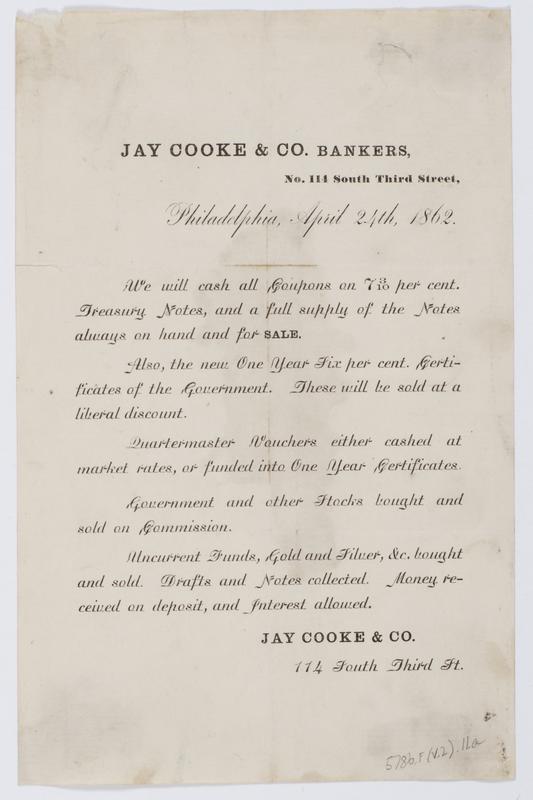 JAY COOKE & CO. BANKERS,
No. 114 South Third Street,
Philadelphia, April 24th, 1862.
We will cash all Coupons on 7 3/10 per cent.
Treasury Notes, and a full supply of the Notes
always on hand and for SALE.
Also, the new One Year Six per cent. Certi-
ficates of the Government. These will be sold at a
liberal discount.
Quartermaster Vouchers either cashed at
market rates, or funded into One Year Certificates.
Government and other Stocks bought and
sold on Commission.
Uncurrent Funds, Gold and Silver, &c. bought
and sold. Drafts and Notes collected. Money re-
ceived on deposit, and Interest allowed.
JAY COOKE & CO.
114 South Third St.
5786.F (v.2).11a